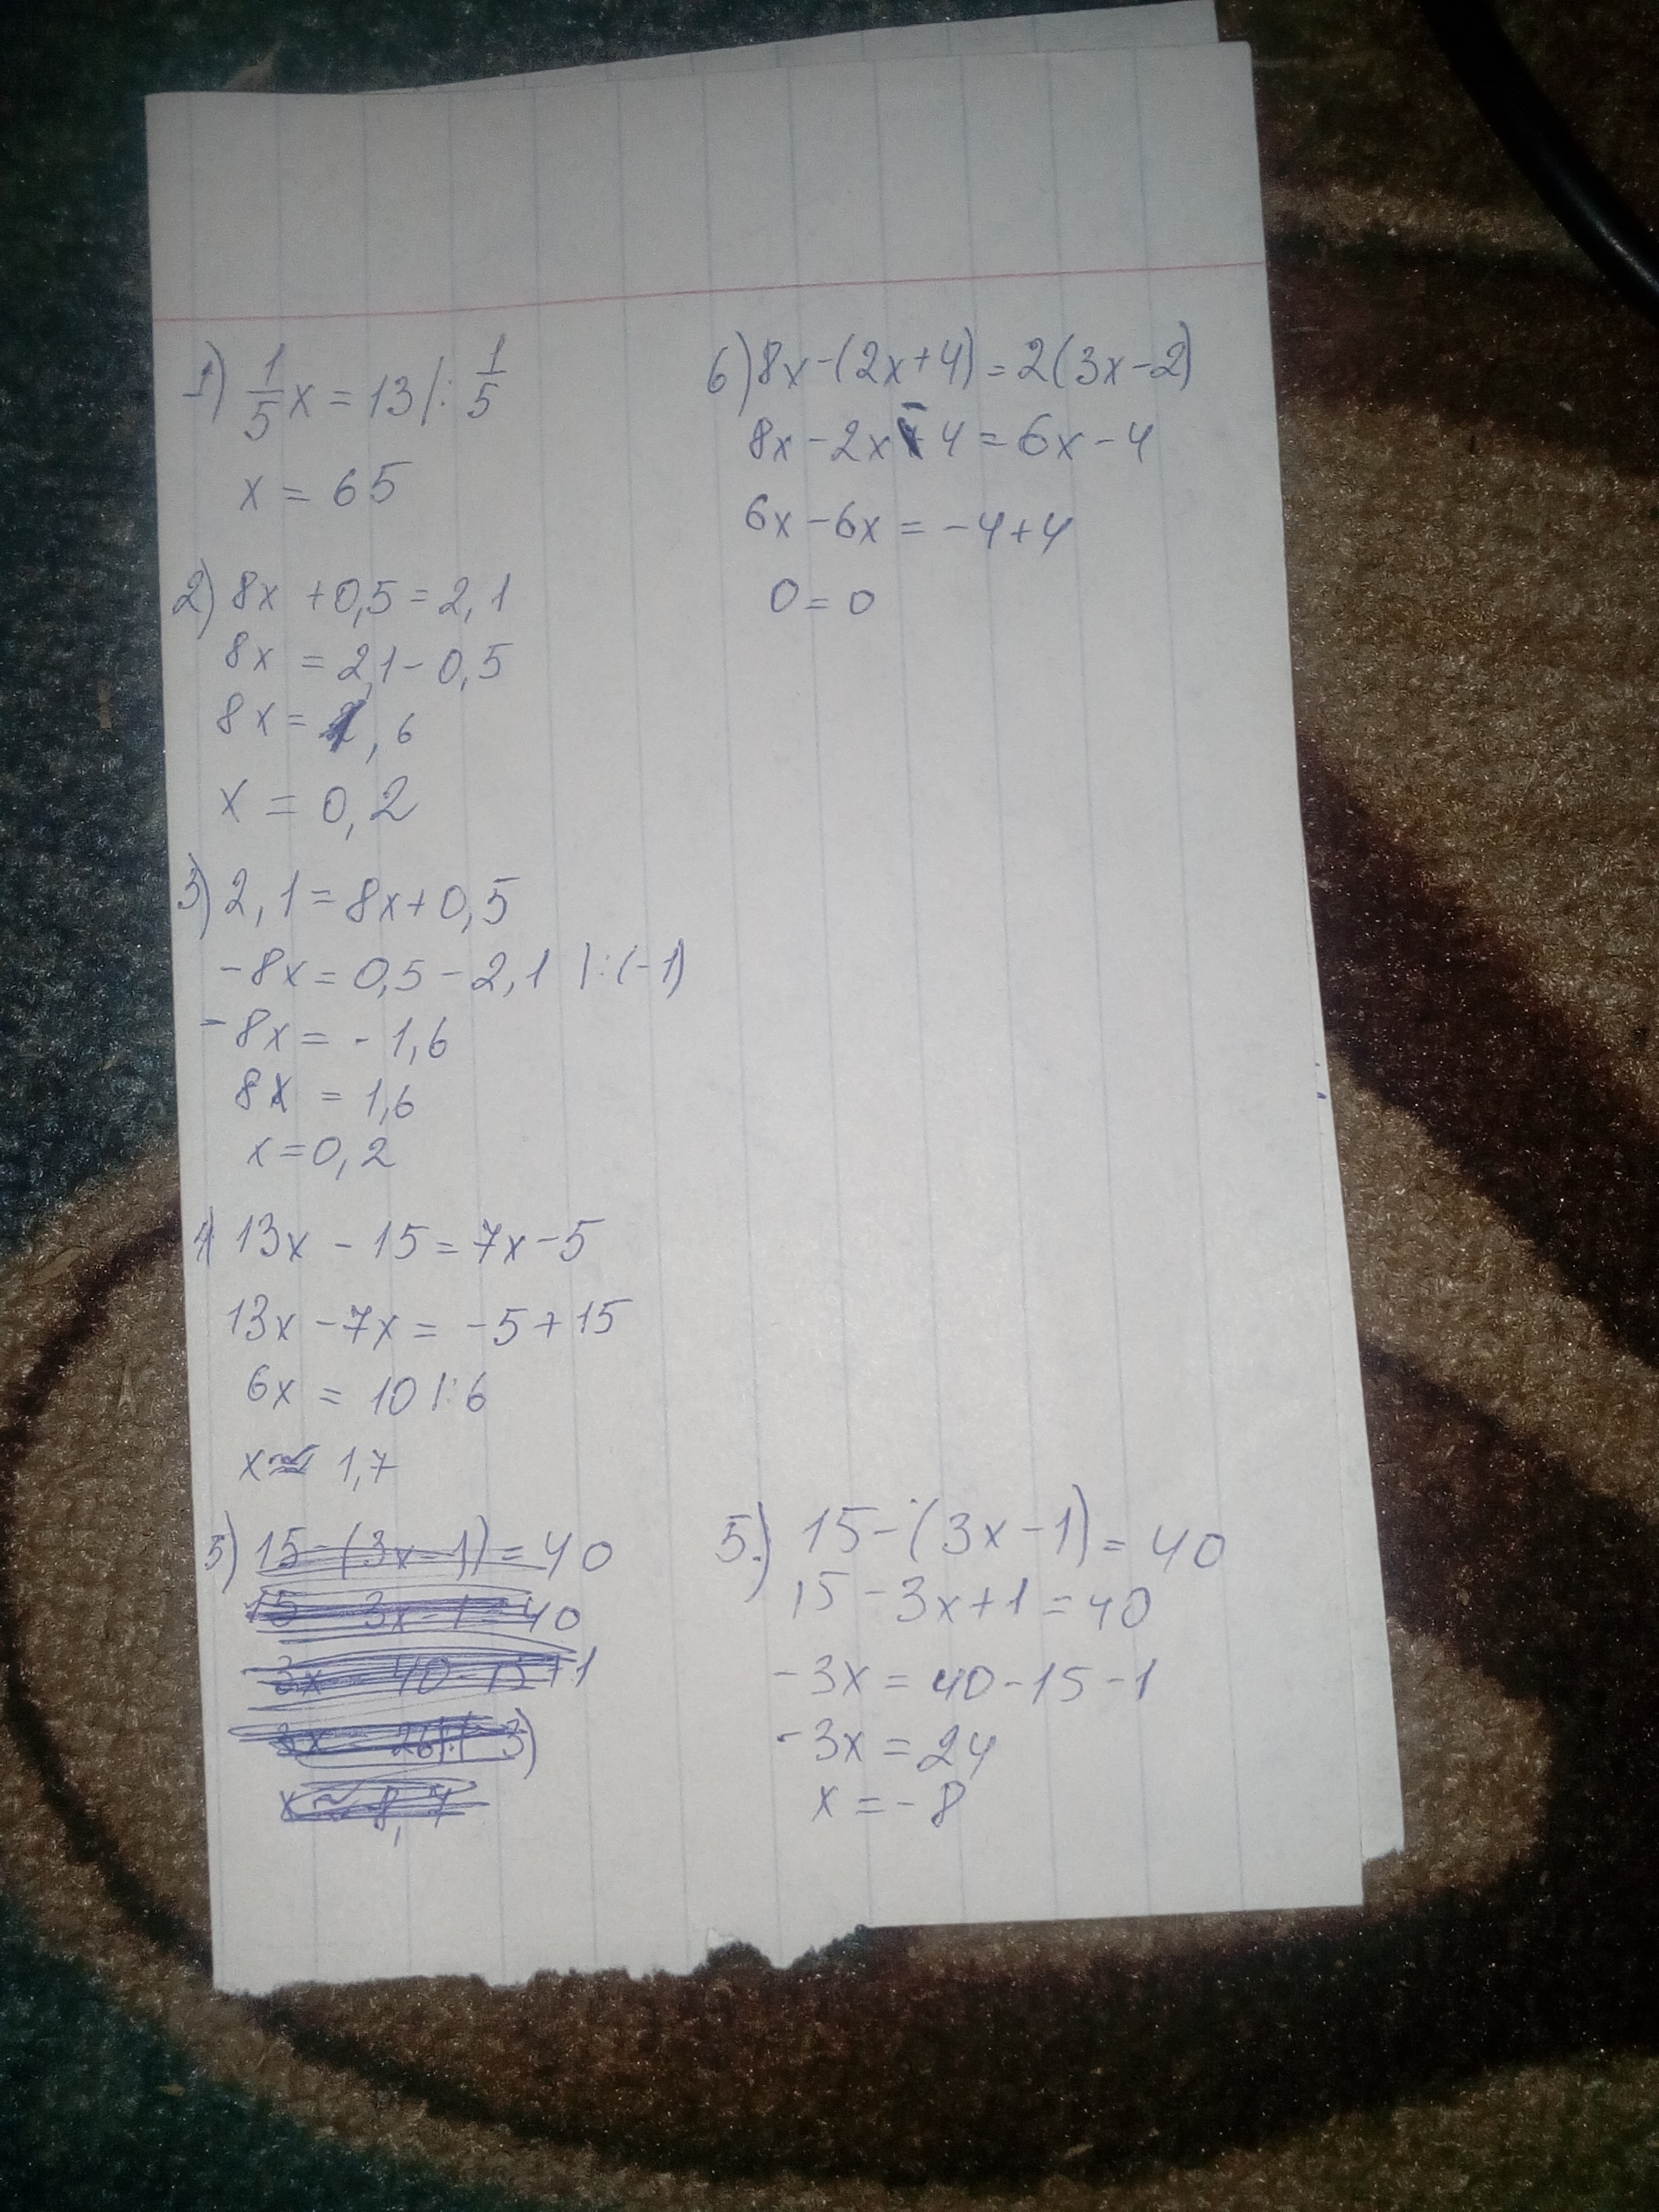 1) 1/5 x = 13 |: 1/5
x = 65
2) 8x + 0,5 = 2,1
8x = 2,1 - 0,5
8x = 1,6
x = 0,2
3) 2,1 = 8x + 0,5
-8x = 0,5 - 2,1 |:(-1)
-8x = -1,6
8x = 1,6
x = 0,2
4) 13x - 15 = 7x - 5
13x - 7x = -5 + 15
6x = 10 |:6
x ≈ 1,7
5) 15 - (3x - 1) = 40
15 - 3x - 1 = 40
-3x = 40 - 15 + 1
-3x = 26 |:(-3)
x ≈ -8,7
6) 8x - (2x + 4) = 2(3x - 2)
8x - 2x - 4 = 6x - 4
6x - 6x = -4 + 4
0 = 0
5.) 15 - (3x - 1) = 40
15 - 3x + 1 = 40
-3x = 40 - 15 - 1
-3x = 24
x = -8